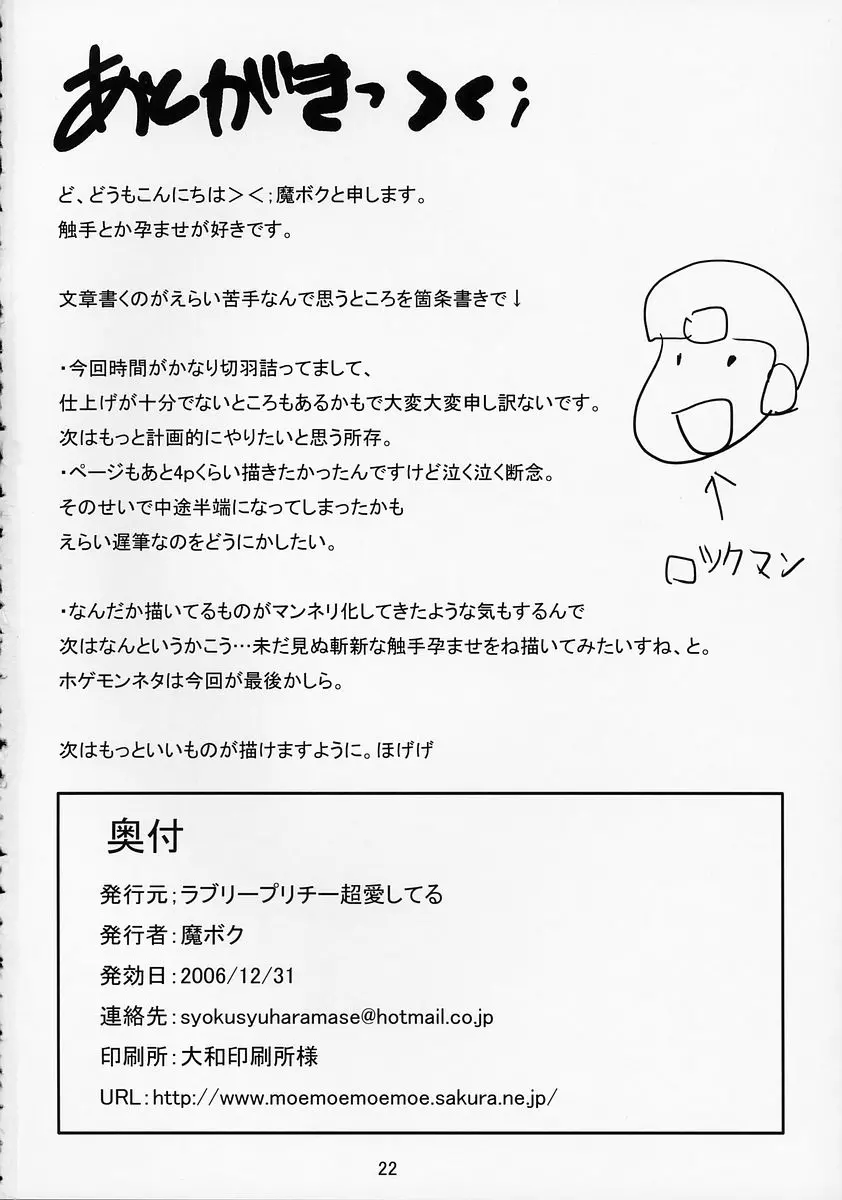 あとがきっ ＞＜；
ど、どうもこんにちは＞＜；魔ボクと申します。
触手とか孕ませが好きです。
文章書くのがえらい苦手なんで思うところを箇条書きで↓
・今回時間がかなり切羽詰ってまして、
仕上げが十分でないところもあるかもで大変大変申し訳ないです。
次はもっと計画的にやりたいと思う所存。
・ページもあと4pくらい描きたかったんですけど泣く泣く断念。
そのせいで中途半端になってしまったかも
えらい遅筆なのをどうにかしたい。
ロックマン
・なんだか描いてるものがマンネリ化してきたような気もするんで
次はなんというかこう…未だ見ぬ斬新な触手孕ませをね描いてみたいすね、と。
ホゲモンネタは今回が最後かしら。
次はもっといいものが描けますように。ほげげ
奥付
発行元；ラブリープリチー超愛してる
発行者：魔ボク
発効日：2006/12/31
連絡先：syokusyuharamase@hotmail.co.jp
印刷所：大和印刷所様
URL：http://www.moemoemoemoe.sakura.ne.jp/
22